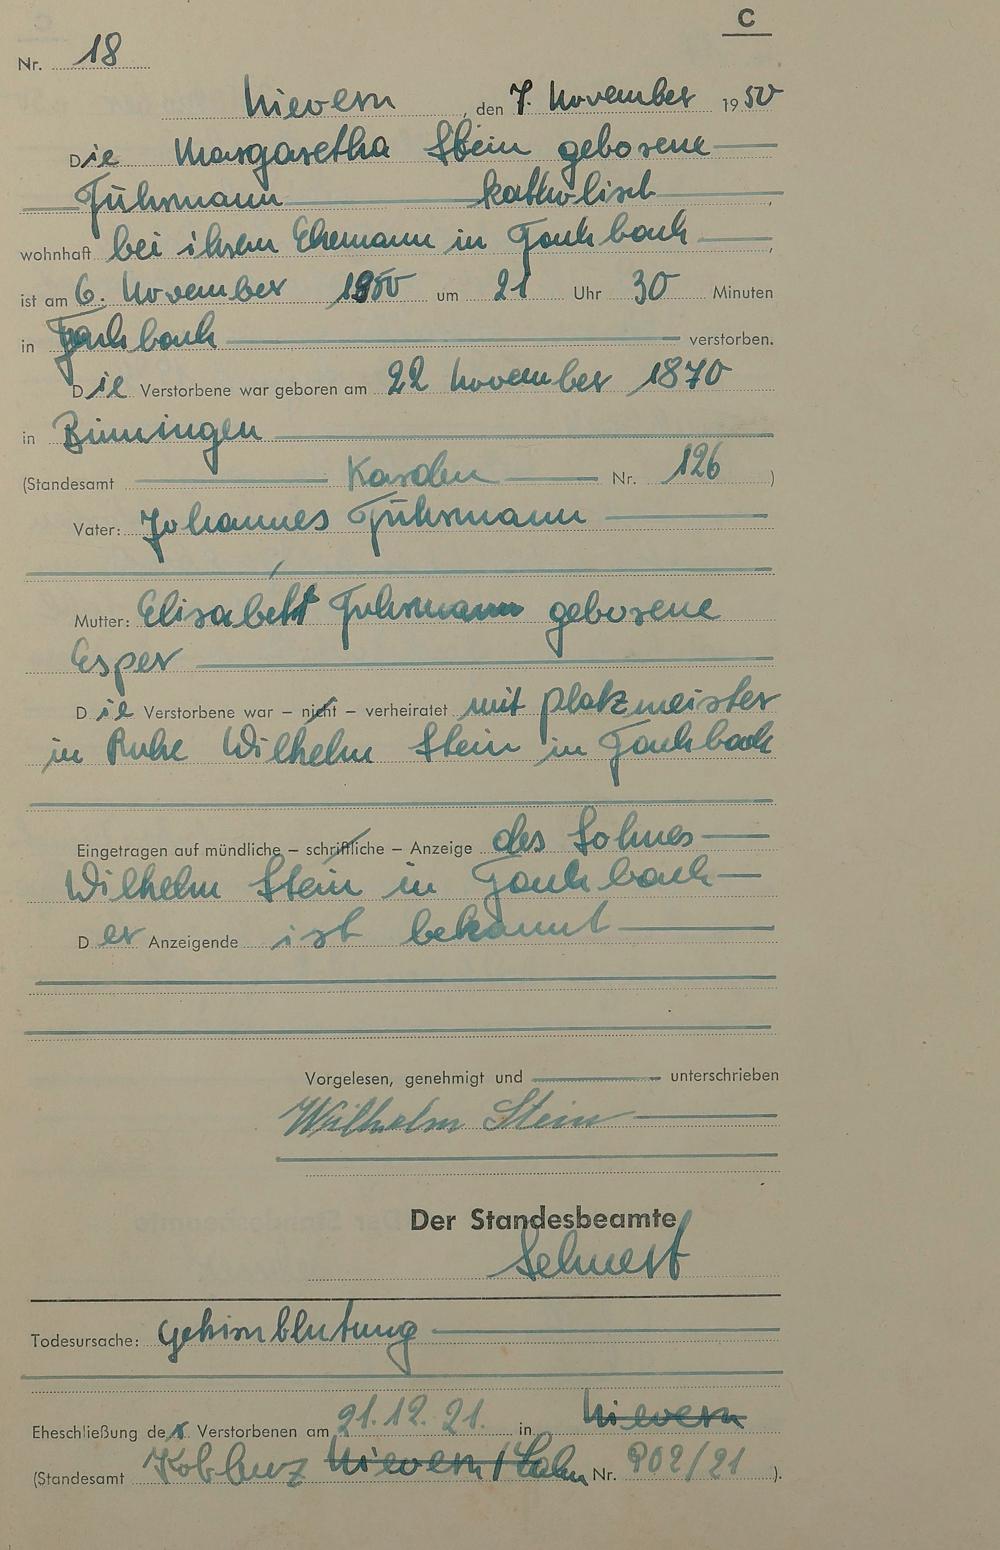 C
Nr. 18
Nievern, den 7. November 1950
Die Margaretha Stein geborene
Führmann katholisch,
wohnhaft bei ihrem Ehemann in Fachbach,
ist am 6. November 1950 um 21 Uhr 30 Minuten
in Fachbach verstorben.
Die Verstorbene war geboren am 22 November 1870
in Binningen
(Standesamt Karden Nr. 126)
Vater: Johannes Führmann
Mutter: Elisabeth Fuhrmann geborene
Esper
Die Verstorbene war – nicht – verheiratet mit Platzmeister
in Ruhe Wilhelm Stein in Fachbach
Eingetragen auf mündliche – schriftliche – Anzeige des Sohnes
Wilhelm Stein in Fachbach
Der Anzeigende ist bekannt
Vorgelesen, genehmigt und unterschrieben
Wilhelm Stein
Der Standesbeamte
Todesursache: Gehirnblutung
Eheschließung der Verstorbenen am 21.12.21. in Nievern
(Standesamt Koblenz Nievern/Lahn Nr. 902/21).